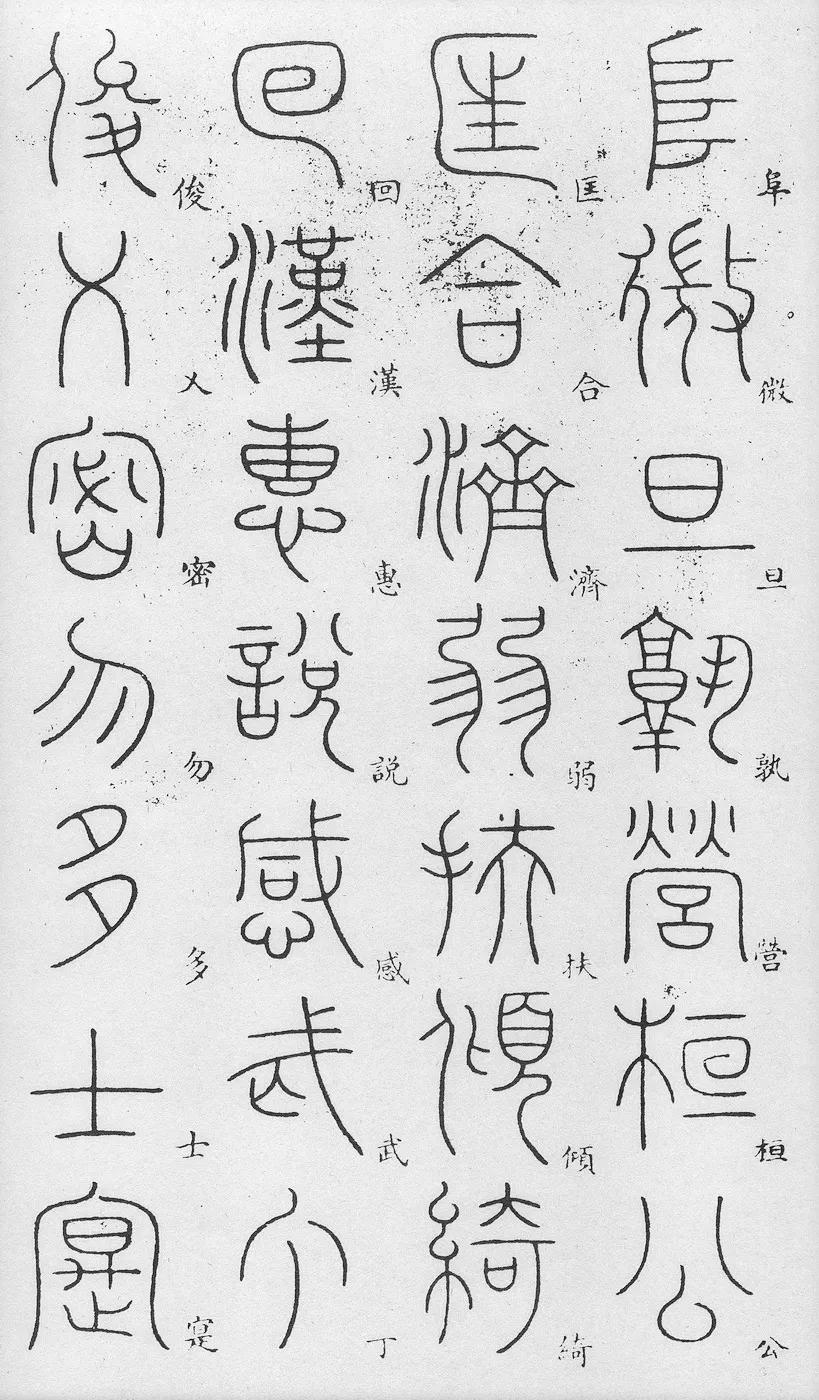 阜微旦孰營桓公
匡合濟弱扶傾綺
回漢惠說感武丁
俊乂密勿多士寔